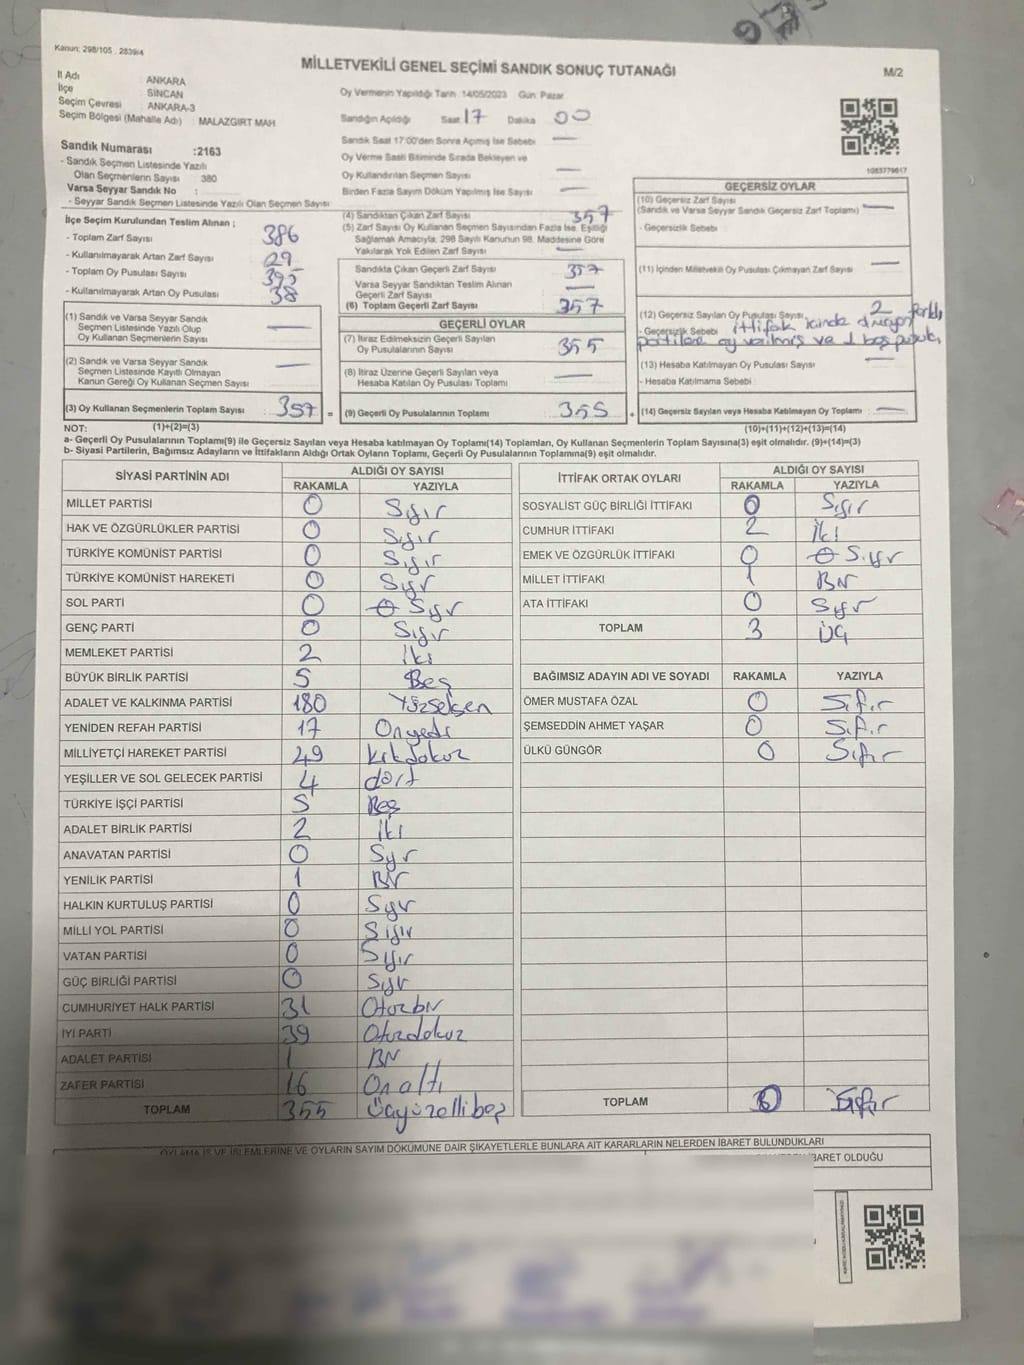 Kanun: 298/105 , 2839/4
MİLLETVEKİLİ GENEL SEÇİMİ SANDIK SONUÇ TUTANAĞI
M/2
İl Adı : ANKARA
İlçe : SİNCAN
Seçim Çevresi : ANKARA-3
Seçim Bölgesi (Mahalle Adı) : MALAZGIRT MAH
Oy Vermenin Yapıldığı Tarih :14/05/2023 Gün: Pazar
Sandığın Açıldığı Saat 17 Dakika 00
Sandık Saat 17:00'den Sonra Açımış İse Sebebi —
Oy Verme Saati Bitiminde Sırada Bekleyen ve
Oy Kullandırılan Seçmen Sayısı —
Birden Fazla Sayım Döküm Yapılmış İse Sayısı —
1083779617
Sandık Numarası :2163
- Sandık Seçmen Listesinde Yazılı
Olan Seçmenlerin Sayısı : 380
Varsa Seyyar Sandık No :
- Seyyar Sandık Seçmen Listesinde Yazılı Olan Seçmen Sayısı :
İlçe Seçim Kurulundan Teslim Alınan ;
- Toplam Zarf Sayısı 386
- Kullanılmayarak Artan Zarf Sayısı 29
- Toplam Oy Pusulası Sayısı 395
- Kullanılmayarak Artan Oy Pusulası 38
(1) Sandık ve Varsa Seyyar Sandık
Seçmen Listesinde Yazılı Olup
Oy Kullanan Seçmenlerin Sayısı —
(2) Sandık ve Varsa Seyyar Sandık
Seçmen Listesinde Kayıtlı Olmayan
Kanun Gereği Oy Kullanan Seçmen Sayısı —
(3) Oy Kullanan Seçmenlerin Toplam Sayısı 357 =
(4) Sandıktan Çıkan Zarf Sayısı 357
(5) Zarf Sayısı Oy Kullanan Seçmen Sayısından Fazla İse, Eşitliği
Sağlamak Amacıyla, 298 Sayılı Kanunun 98. Maddesine Göre
Yakılarak Yok Edilen Zarf Sayısı —
Sandıkta Çıkan Geçerli Zarf Sayısı 357
Varsa Seyyar Sandıktan Teslim Alınan
Geçerli Zarf Sayısı —
(6) Toplam Geçerli Zarf Sayısı 357
GEÇERLİ OYLAR
(7) İtiraz Edilmeksizin Geçerli Sayılan
Oy Pusulalarının Sayısı 355
(8) İtiraz Üzerine Geçerli Sayılan veya
Hesaba Katılan Oy Pusulası Toplamı —
(9) Geçerli Oy Pusulalarının Toplamı 355 +
GEÇERSİZ OYLAR
(10) Geçersiz Zarf Sayısı
(Sandık ve Varsa Seyyar Sandık Geçersiz Zarf Toplamı) —
- Geçersizlik Sebebi
(11) İçinden Milletvekili Oy Pusulası Çıkmayan Zarf Sayısı —
(12) Geçersiz Sayılan Oy Pusulası Sayısı 2 farklı
- Geçersizlik Sebebi ittifak içinde
partilere oy verilmiş ve 1 boş pusula
(13) Hesaba Katılmayan Oy Pusulası Sayısı —
- Hesaba Katılmama Sebebi
(14) Geçersiz Sayılan veya Hesaba Katılmayan Oy Toplamı —
NOT: (1)+(2)=(3)
(10)+(11)+(12)+(13)=(14)
a- Geçerli Oy Pusulalarının Toplamı(9) ile Geçersiz Sayılan veya Hesaba katılmayan Oy Toplamı(14) Toplamları, Oy Kullanan Seçmenlerin Toplam Sayısına(3) eşit olmalıdır. (9)+(14)=(3)
b- Siyasi Partilerin, Bağımsız Adayların ve İttifakların Aldığı Ortak Oyların Toplamı, Geçerli Oy Pusulalarının Toplamına(9) eşit olmalıdır.
SİYASİ PARTİNİN ADI ALDIĞI OY SAYISI
RAKAMLA YAZIYLA
MİLLET PARTİSİ 0 Sıfır
HAK VE ÖZGÜRLÜKLER PARTİSİ 0 Sıfır
TÜRKİYE KOMÜNİST PARTİSİ 0 Sıfır
TÜRKİYE KOMÜNİST HAREKETİ 0 Sıfır
SOL PARTİ 0 Sıfır
GENÇ PARTİ 0 Sıfır
MEMLEKET PARTİSİ 2 İki
BÜYÜK BİRLİK PARTİSİ 5 Beş
ADALET VE KALKINMA PARTİSİ 180 Yüzseksen
YENİDEN REFAH PARTİSİ 17 Onyedi
MİLLİYETÇİ HAREKET PARTİSİ 49 Kırkdokuz
YEŞİLLER VE SOL GELECEK PARTİSİ 4 dört
TÜRKİYE İŞÇİ PARTİSİ 5 Beş
ADALET BİRLİK PARTİSİ 2 İki
ANAVATAN PARTİSİ 0 Sıfır
YENİLİK PARTİSİ 1 Bir
HALKIN KURTULUŞ PARTİSİ 0 Sıfır
MİLLİ YOL PARTİSİ 0 Sıfır
VATAN PARTİSİ 0 Sıfır
GÜÇ BİRLİĞİ PARTİSİ 0 Sıfır
CUMHURİYET HALK PARTİSİ 31 Otuzbir
İYİ PARTİ 39 Otuzdokuz
ADALET PARTİSİ 1 Bir
ZAFER PARTİSİ 16 Onaltı
TOPLAM 355 Üçyüzellibeş
İTTİFAK ORTAK OYLARI ALDIĞI OY SAYISI
RAKAMLA YAZIYLA
SOSYALİST GÜÇ BİRLİĞİ İTTİFAKI 0 Sıfır
CUMHUR İTTİFAKI 2 İki
EMEK VE ÖZGÜRLÜK İTTİFAKI 0 Sıfır
MİLLET İTTİFAKI 1 Bir
ATA İTTİFAKI 0 Sıfır
TOPLAM 3 Üç
BAĞIMSIZ ADAYIN ADI VE SOYADI RAKAMLA YAZIYLA
ÖMER MUSTAFA ÖZAL 0 Sıfır
ŞEMSEDDİN AHMET YAŞAR 0 Sıfır
ÜLKÜ GÜNGÖR 0 Sıfır
TOPLAM 0 Sıfır
OYLAMA İŞ VE İŞLEMLERİNE VE OYLARIN SAYIM DÖKÜMÜNE DAİR ŞİKAYETLERLE BUNLARA AİT KARARLARIN NELERDEN İBARET BULUNDUKLARI
İBARET OLDUĞU